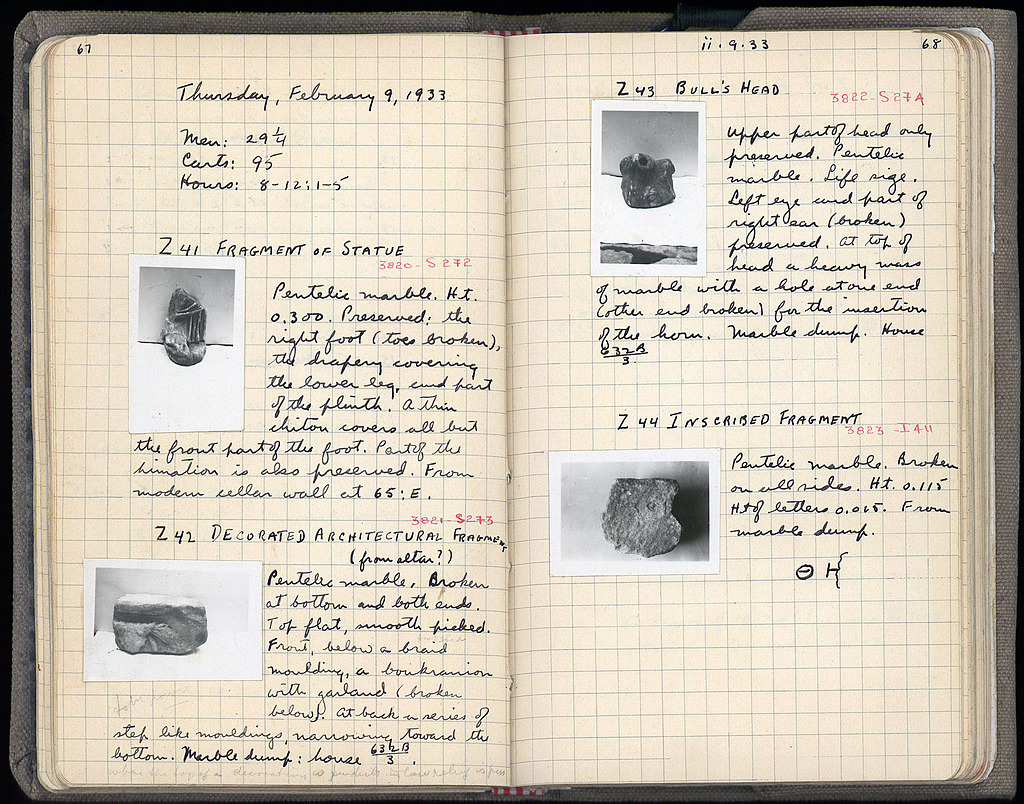 67
Thursday, February 9, 1933
Men: 29 1/4
Carts: 95
Hours: 8-12; 1-5
Z 41 FRAGMENT OF STATUE
3820-S 272
Pentelic marble. Ht.
0.300. Preserved: the
right foot (toes broken),
the drapery covering
the lower leg, and part
of the plinth. A thin
chiton covers all but
the front part of the foot. Part of the
himation is also preserved. From
modern cellar wall at 65:E.
3821-S273
Z 42 DECORATED ARCHITECTURAL FRAGMENT
(from altar?)
Pentelic marble. Broken
at bottom and both ends.
Top flat, smooth picked.
Front, below a braid
moulding, a boukranion
with garland (broken
below). At back a series of
step like mouldings, narrowing toward the
bottom. Marble dump: house 632B/3.
ii.9.33
68
Z 43 BULL'S HEAD
3822-S 274
Upper part of head only
preserved. Pentelic
marble. Life size.
Left eye and part of
right ear (broken)
preserved. At top of
head a heavy mass
of marble with a hole at one end
(other end broken) for the insertion
of the horn. Marble dump. House
632B/3
Z 44 INSCRIBED FRAGMENT
3823-I 411
Pentelic marble. Broken
on all sides. Ht. 0.115
Ht of letters 0.015. From
marble dump.
Θ H